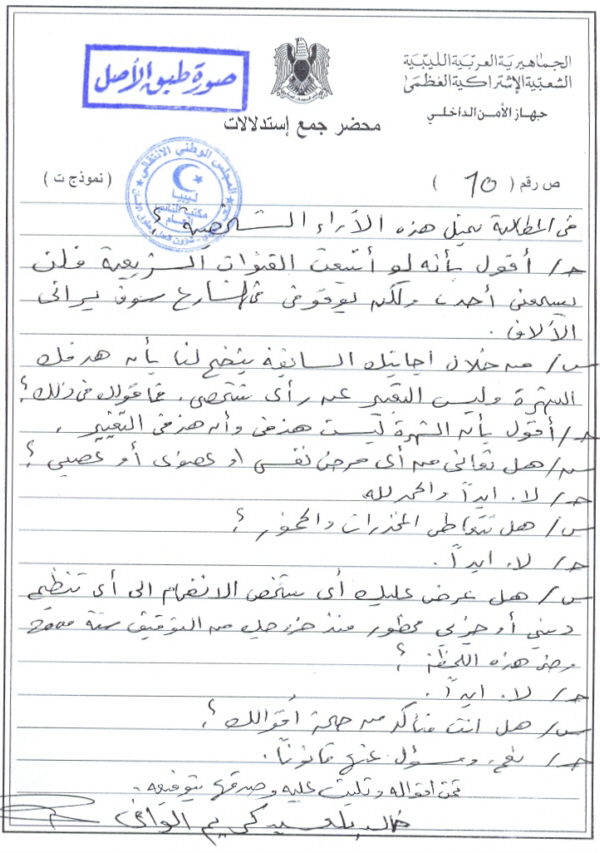 الجماهيرية العربية الليبية
الشعبية الإشتراكية العظمى
جهاز الأمن الداخلي
صورة طبق الأصل
محضر جمع إستدلالات
ص رقم ( 10 )
( نموذج ت )
المجلس الوطني الانتقالي
ليبيا
مكتب النائب العام
في المطالبة بمثل هذه الآراء الشخصية ؟
ج/ أقول بأنه لو أتبعت القنوات الشريعية فلن
يسمعني أحد ولكن بوقوفي في الشارع سوف يراني
الألاف .
س/ من خلال اجابتك السابقة يتضح لنا بأن هدفك
الشهرة وليس التعبير عن رأي شخصي . فما قولك في ذلك ؟
ج/ أقول بأن الشهرة ليست هدفي وأن هدفي التغيير .
س/ هل تعاني من أي مرض نفسي او عضوي أو عصبي ؟
ج/ لا . ابداً والحمد لله
س/ هل تتعاطى المخدرات والخمور ؟
ج/ لا . ابداً .
س/ هل عرض عليك أي شخص الانضمام الى أي تنظيم
ديني أو حزبي محظور منذ خروجك من التوقيف سنة 2000
وحتى هذه اللحظة ؟
ج/ لا . ابداً .
س/ هل انت متأكد من صحة أقوالك ؟
ج/ نعم ومسؤل عنها قانوناً .
تمت اقواله وتليت عليه وصدقها بتوقيعه .